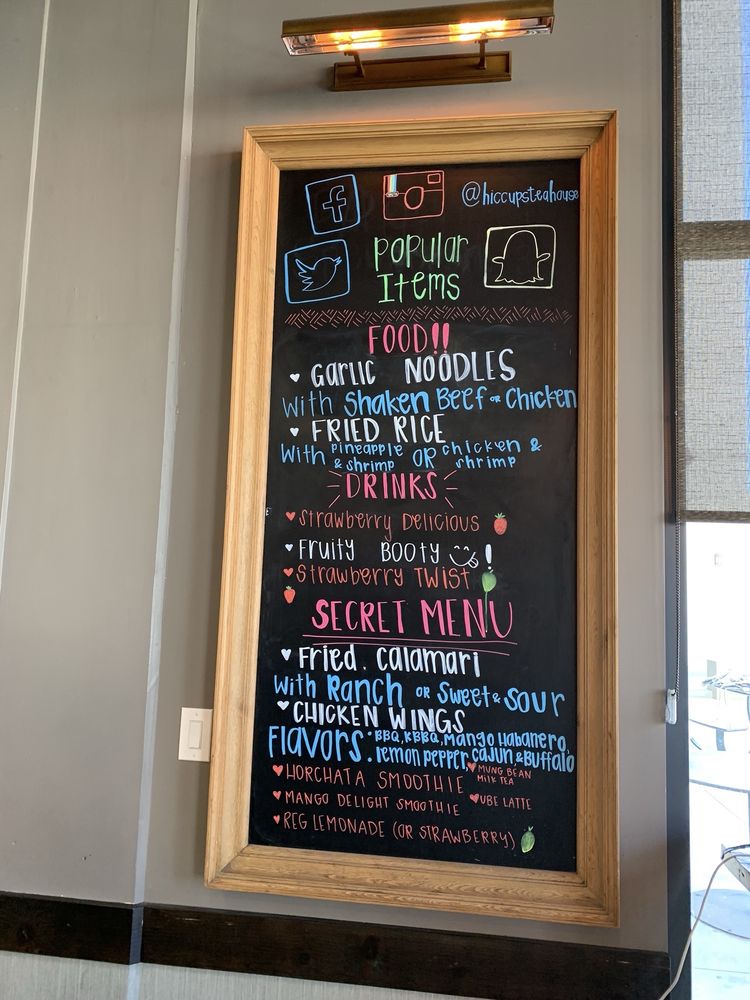 @hiccupsteahouse
Popular
Items
FOOD!!
Garlic NOODLES
With Shaken Beef OR Chicken
FRIED RICE
With pineapple & shrimp OR chicken & shrimp
DRINKS
Strawberry Delicious
Fruity BOOTY !
Strawberry TWIST
SECRET MENU
Fried Calamari
With Ranch OR Sweet & Sour
CHICKEN WINGS
Flavors: BBQ, KBBQ, Mango Habanero,
lemon pepper, Cajun & Buffalo
HORCHATA SMOOTHIE
MUNG BEAN
MILK TEA
MANGO DELIGHT SMOOTHIE
UBE LATTE
REG LEMONADE (OR STRAWBERRY)